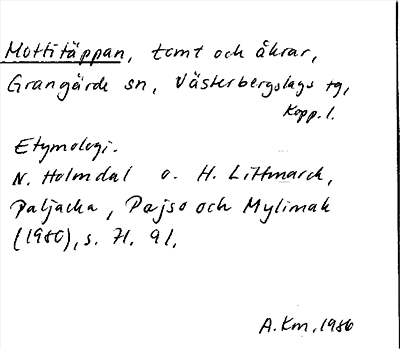 Mottitäppan, tomt och åkrar,
Grangärde sn, Västerbergslags tg,
Kopp. l.
Etymologi.
N. Holmdal o. H. Littmarck,
Paljacka, Pajso och Mylimak
(1980), s. 71. 91.
A.Km, 1986